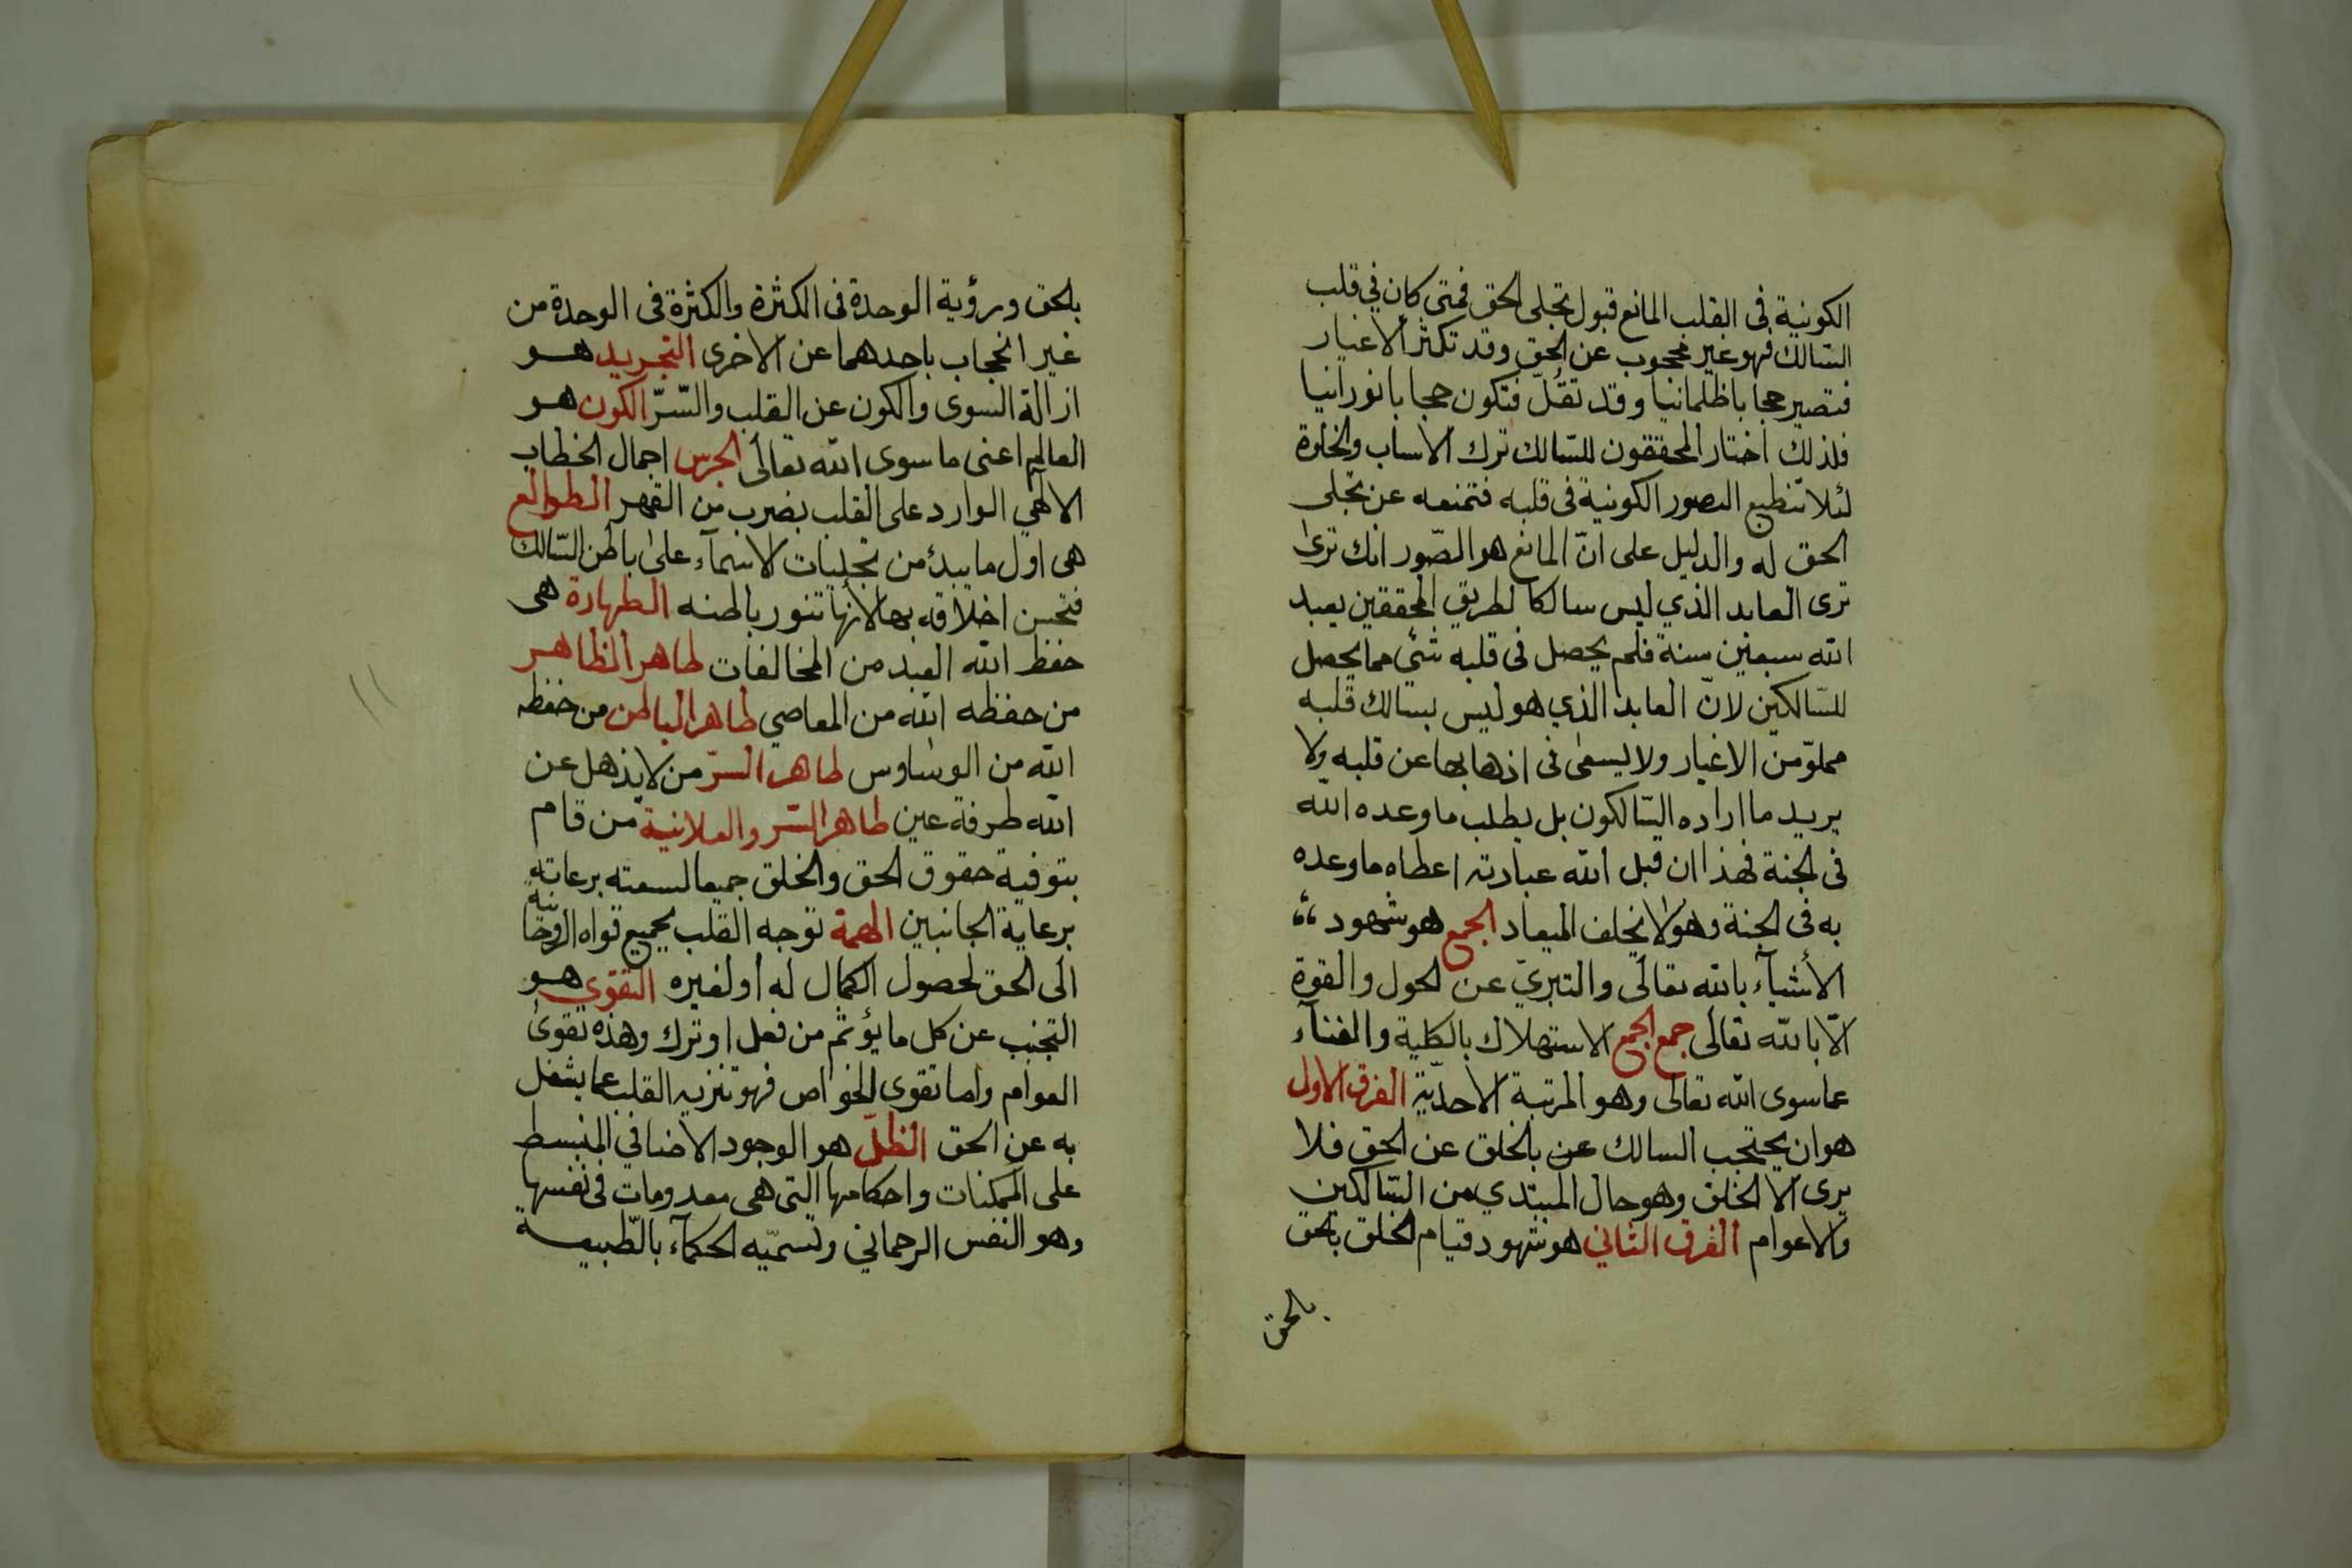 الكونية فى القلب المانع قبول تجلى الحق فمتى كان في قلب
السّالك فهو غير محجوب عن الحق وقد تكثر الاغيار
فتصير حجابا ظلمانيا وقد تقلّ فتكون حجابا نورانيا
فلذلك اختار المحققون للسّالك ترك الاسباب والخلوة
لئلا تنطبع الصور الكونية فى قلبه فتمنعه عن تجلى
الحق له والدليل على انّ المانع هو الصّور انك ترى
ترى العابد الذي ليس سالكا لطريق المحققين يعبد
الله سبعين سنة فلم يحصل فى قلبه شئ مما يحصل
للسّالكين لانّ العابد الذي هو ليس بسالك قلبه
مملوّ من الاغيار ولا يسعى فى اذهابها عن قلبه ولا
يريد ما اراده السّالكون بل يطلب ما وعده الله
فى الجنة فهذا ان قبل الله عبادته اعطاه ما وعده
به فى الجنة وهو لا يخلف الميعاد الجمع هو شهود
الأشيآء بالله تعالى والتبريّ عن الحول والقوة
الّا بالله تعالى جمع الجمع الاستهلاك بالكلية والفنآء
عما سوى الله تعالى وهو المرتبة الاحديّة الفرق الاول
هو ان يحتجب السالك عن بالخلق عن الحق فلا
يرى الا الخلق وهو حال المبتدي من السّالكين
والاعوام الفرق الثاني هو شهود قيام الخلق بالحق
بالحق
بالحق ورؤية الوحدة فى الكثرة والكثرة فى الوحدة من
غير انحجاب باحدهما عن الاخرى التجريد هو
ازالة السوى والكون عن القلب والسّرّ الكون هو
العالم اعنى ما سوى الله تعالى الجرس اجمال الخطاب
الالهي الوارد على القلب بضرب من القهر الطوالع
هى اول ما يبدؤ من تجليات الاسمآء على باطن السّالك
فتحسن اخلاقه بها لانها تنور باطنه الطهارة هى
حفظ الله العبد من المخالفات طاهر الظاهر
من حفظه الله من المعاصي طاهر الباطن من حفظه
الله من الوساوس طاهر السرّ من لا يذهل عن
الله طرفة عين طاهر السّر والعلانية من قام
بتوفية حقوق الحق والخلق جميعا لسعته برعاته
برعاية الجانبين الهمة توجه القلب بجميع قواه الروحانية
الى الحق لحصول الكمال له أو لغيره التقوي هو
التجنب عن كل ما يؤثم من فعل او ترك وهذه تقوى
العوام واما تقوى الخواص فهو تنزيه القلب عما يشغل
به عن الحق الظلّ هو الوجود الاضافي المنبسط
على الممكنات واحكامها التى هى معدومات فى نفسها
وهو النفس الرحماني وتسمّيه الحكمآء بالطّبيعة
١١